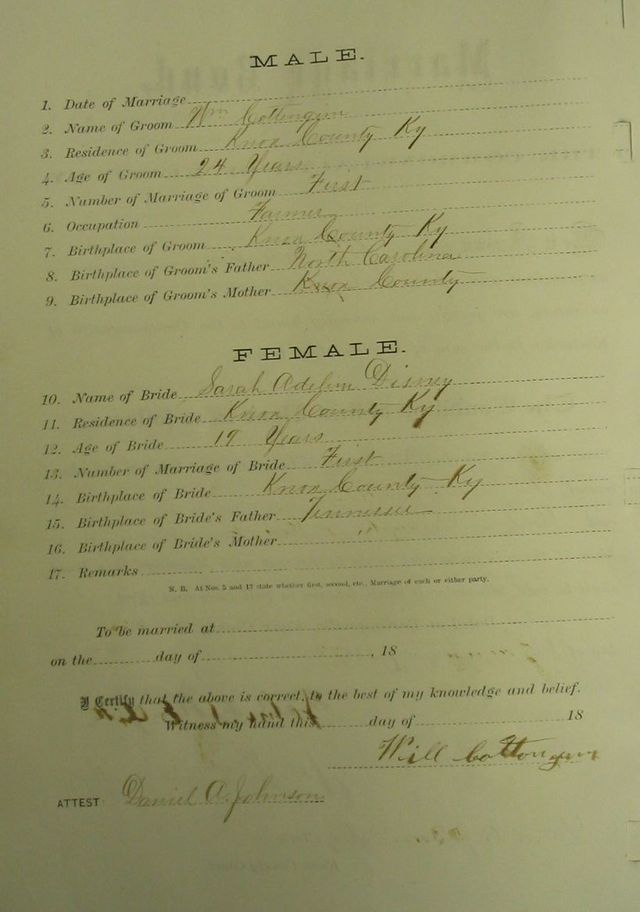 MALE.
1. Date of Marriage
2. Name of Groom Wm Cottongim
3. Residence of Groom Knox County Ky
4. Age of Groom 24 Years
5. Number of Marriage of Groom First
6. Occupation Farmer
7. Birthplace of Groom Knox County Ky
8. Birthplace of Groom's Father North Carolina
9. Birthplace of Groom's Mother Knox County
FEMALE.
10. Name of Bride Sarah Adeline Disney
11. Residence of Bride Knox County Ky
12. Age of Bride 19 Years
13. Number of Marriage of Bride First
14. Birthplace of Bride Knox County Ky
15. Birthplace of Bride's Father Tennessee
16. Birthplace of Bride's Mother "
17. Remarks
N. B. At Nos. 5 and 13 state whether first, second, etc., Marriage of each or either party.
To be married at
on the day of , 18
I Certify that the above is correct, to the best of my knowledge and belief.
Witness my hand this day of 18
Will Cottongim
ATTEST Daniel A. Johnson